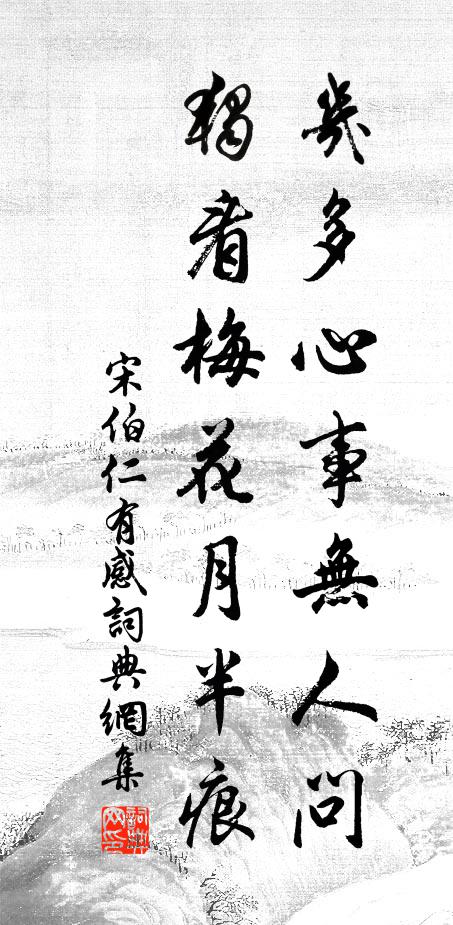 幾多心事無人問
獨看梅花月半痕
宋伯仁有感詞典網集